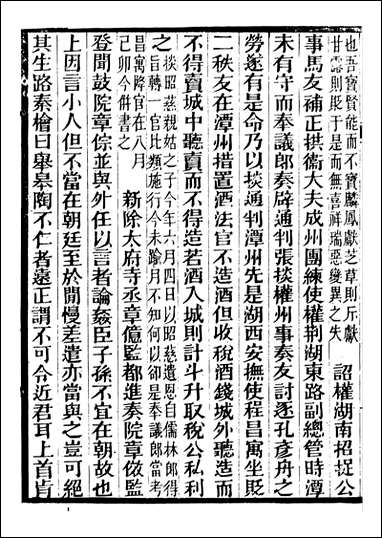 也吾寶賢能而不寶麟鳳獻芝草則斥獻
甘露則戾于是而無喜祥瑞惡變異之失
詔權湖南招捉公
事馬友補正拱衞大夫成州團練使權荆湖東路副總管時潭
未有守而奉議郎奏辟通判張掞權州事奏友討逐孔彥舟之
勞遂有是命乃以掞通判潭州先是湖西安撫使程昌寓坐貶
二秩友在潭州措置酒法官不造酒但收稅酒錢城外聽造而
不得賣城中聽賣而不得造若酒入城則計斗升取稅公私利
之
掞昭慈親姞之子今年六月四日以昭慈遺恩自儒林郎得
旨轉一官比類施行今未踰月不知何以卻是奉議郎當考
昌寓降官在八月
己卯今併書之
新除太府寺丞章億監都進奏院章倣監
登聞鼓院章倧並與外任以言者論姦臣子孫不宜在朝故也
上因言小人但不當在朝廷至於閒慢差遣亦當與之豈可絕
其生路秦檜曰舉皋陶不仁者遠正謂不可令近君耳上首肯